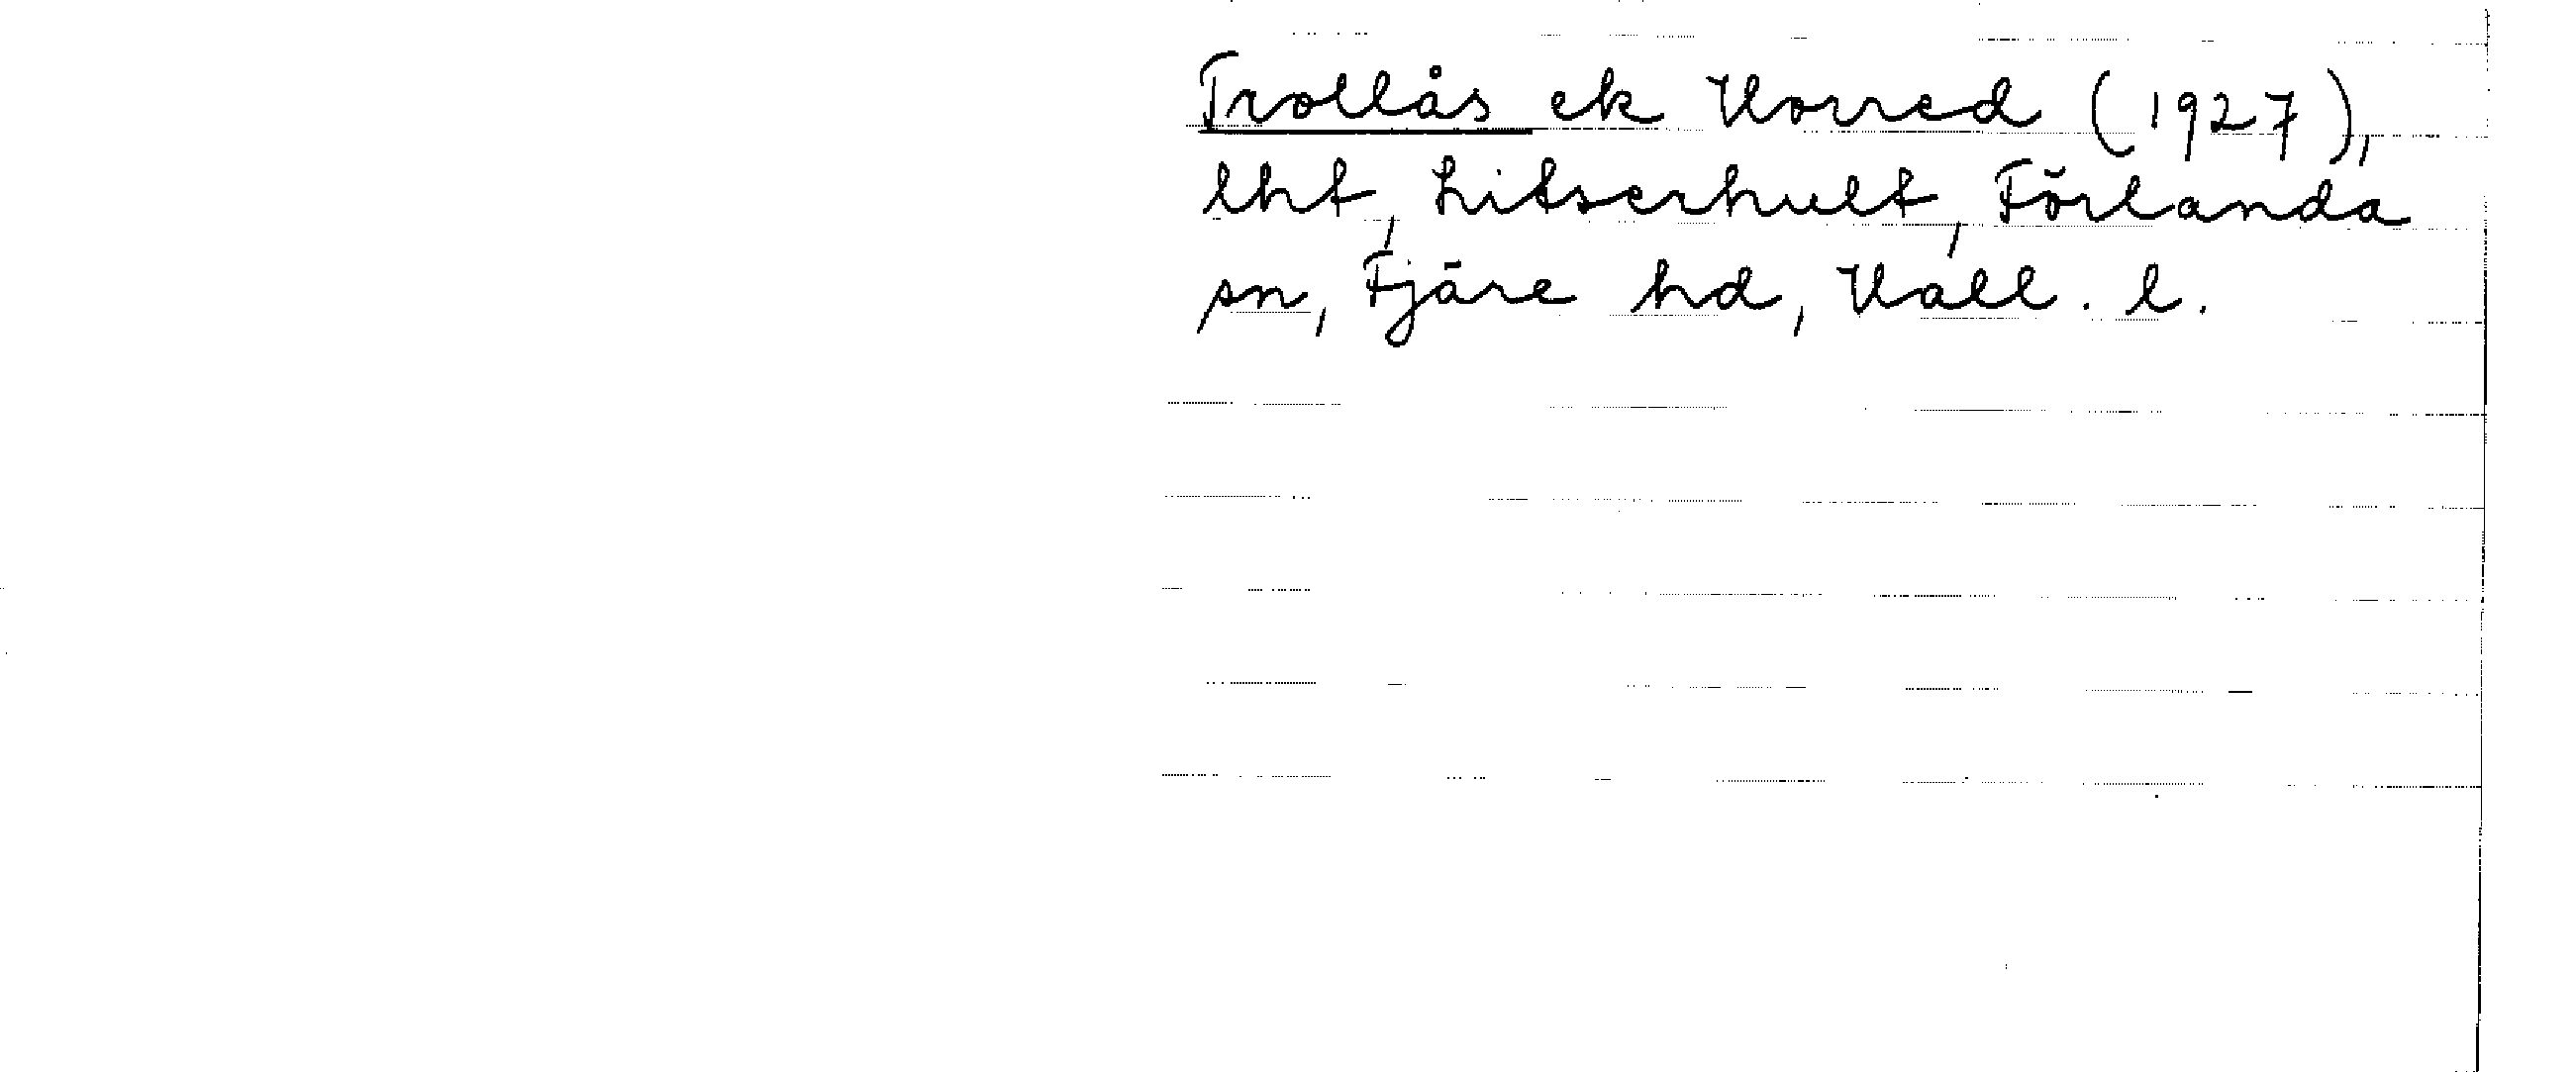 Trollås ek Horred (1927),
lht, Litserhult, Förlanda
sn, Fjäre hd, Hall. l.